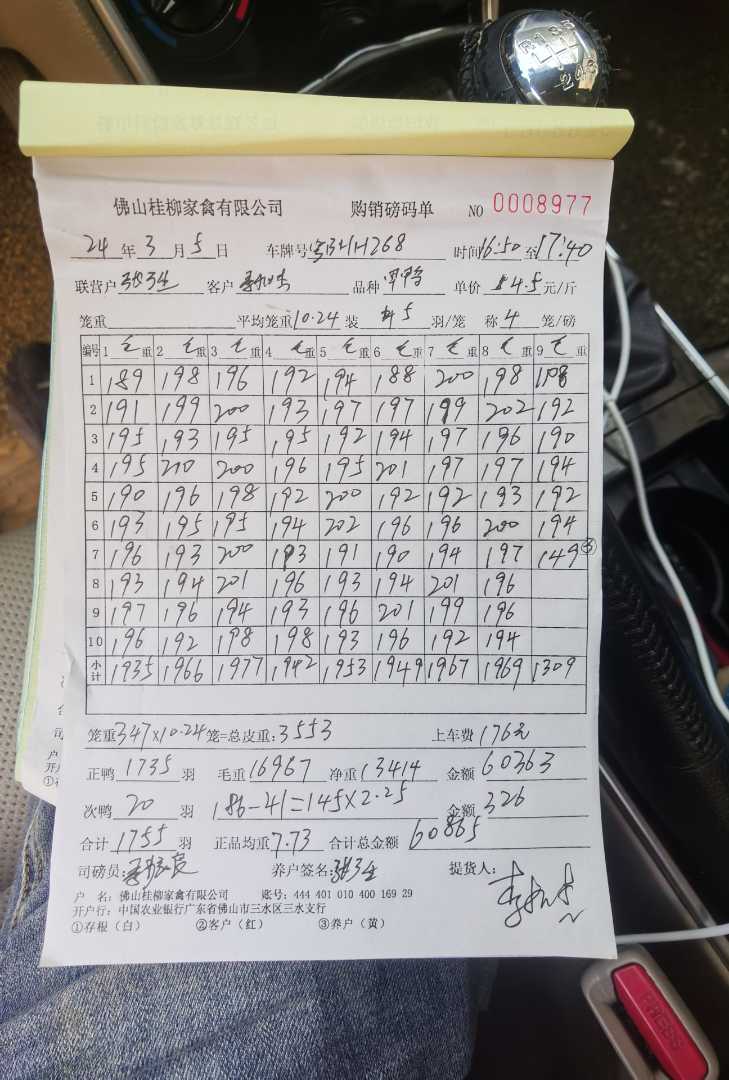 R135
246
佛山桂柳家禽有限公司 购销磅码单 NO 0008977
24年3月5日 车牌号 H268 时间16:50至17:40
联营户 客户 品种 单价 4.5元/斤
笼重 平均笼重10.24装 5羽/笼 称4笼/磅
编号 1毛重 2毛重 3毛重 4毛重 5毛重 6毛重 7毛重 8毛重 9毛重
1 189 198 196 192 194 188 200 198 198
2 191 199 200 193 197 197 199 202 192
3 195 193 195 195 192 194 197 196 190
4 195 210 200 196 195 201 197 197 194
5 190 196 198 192 200 192 192 193 192
6 193 195 195 194 202 196 196 200 194
7 196 193 200 193 191 190 194 197 149③
8 193 194 201 196 193 194 201 196
9 197 196 194 193 196 201 199 196
10 196 192 198 198 193 196 192 194
小计 1935 1966 1977 1942 1953 1949 1967 1969 1309
笼重347×10.24笼=总皮重:3553 上车费176元
正鸭1735羽 毛重16967净重13414 金额60363
次鸭20羽 186-41=145×2.25 金额326
合计1755羽 正品均重7.73 合计总金额60865
司磅员: 养户签名: 提货人:
户 名:佛山桂柳家禽有限公司 账号:444 401 010 400 169 29
开户行:中国农业银行广东省佛山市三水区三水支行
①存根(白) ②客户(红) ③养户(黄)
PRESS